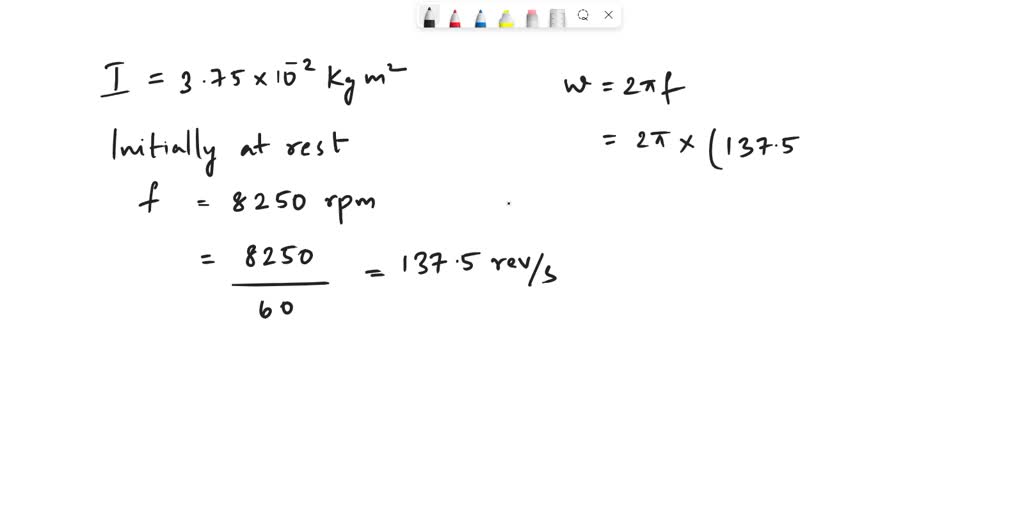 I = 3.75 × 10⁻² Kg m²
Initially at rest
f = 8250 rpm
= 8250 / 60 = 137.5 rev/s
w = 2πf
= 2π × (137.5